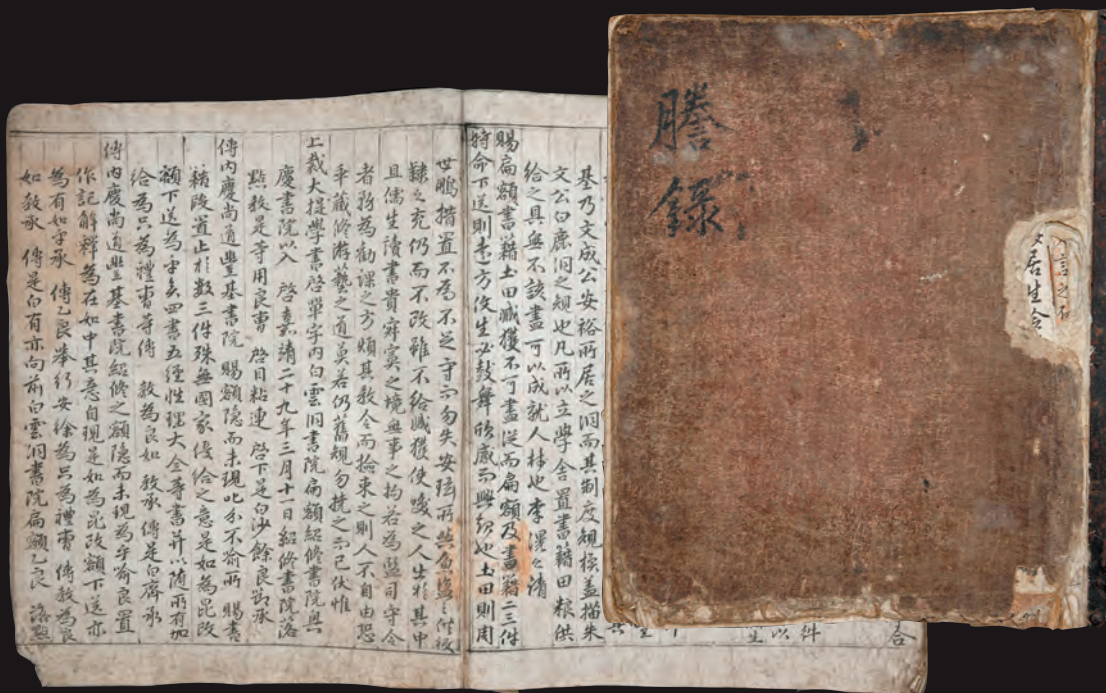 謄錄
居生令
基乃文成公安裕所居之洞而其制度規模盖描朱
文公白鹿洞之規也凡所以立學舍置書籍田粮供
給之具無不該盡可以成就人材也李滉之請
賜扁額書籍土田臧獲不可盡從而扁額及書籍二三件
特命下送則遠方俊生必鼓舞欣感而興起也土田則周
世鵬措置不為不足守而勿失安玹所與魚塩之供役
隷之充仍而不改雖不給臧獲使喚之人生於其中
且儒生讀書貴寂寞之境無事之拘若為監司守令
者務為勸課之方煩其敎令而撿束之則人不自由恐
乎藏修游藝之道莫若仍舊規勿撓之而已伏惟
上裁大提學書啓單字內白雲洞書院扁額紹修書院與
慶書院以入 啓嘉靖二十九年三月十一日紹修書院落
點敎是等用良曹 啓目粘連 啓下是白沙餘良節承
傳內慶尚道豊基書院 賜額隱而未現叱分不喩所 賜書
籍段置止於數三件殊無國家優給之意是如為昆改
額下送為乎矣四書五經性理大全等書幷以隨所有加
給為只為禮曹等傳 敎為良如 敎承傳是白齊承
傳內慶尚道豊基書院紹修之額隱而未現為乎喩良置
作記解釋為在如中其意自現是如為昆改額下送亦
為有如乎承 傳乙良舉行安徐為只為禮曹 傳敎為良
如敎承 傳是白有亦向前白雲洞書院扁額乙良 落點